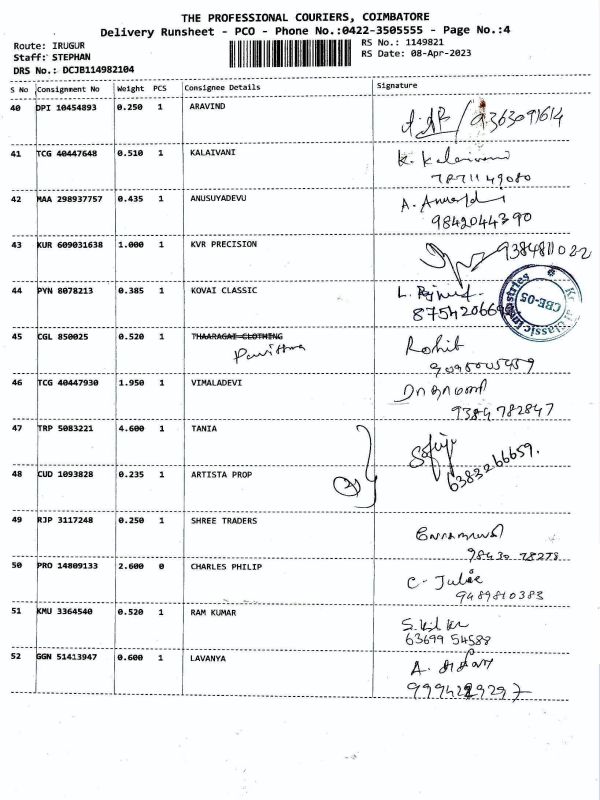 THE PROFESSIONAL COURIERS, COIMBATORE
Delivery Runsheet - PCO - Phone No.:0422-3505555 - Page No.:4
Route: IRUGUR
RS No.: 1149821
Staff: STEPHAN
RS Date: 08-Apr-2023
DRS No.: DCJB114982104
S No Consignment No Weight PCS Consignee Details Signature
40 DPI 10454893 0.250 1 ARAVIND 9363091614
41 TCG 40447648 0.510 1 KALAIVANI K. Kalaivani
7871149080
42 MAA 298937757 0.435 1 ANUSUYADEVU
9842044390
43 KUR 609031638 1.000 1 KVR PRECISION 9384811022
44 PYN 8078213 0.385 1 KOVAI CLASSIC
CBE-05
45 CGL 850025 0.520 1 THAARAGAI CLOTHING Rohit
Pavithra
46 TCG 40447930 1.950 1 VIMALADEVI
9384 782847
47 TRP 5083221 4.600 1 TANIA
6383266659.
48 CUD 1093828 0.235 1 ARTISTA PROP
49 RJP 3117248 0.250 1 SHREE TRADERS
98430 78278
50 PRO 14809133 2.600 0 CHARLES PHILIP C- Julie
9489810383
51 KMU 3364540 0.520 1 RAM KUMAR
63699 54588
52 GGN 51413947 0.600 1 LAVANYA